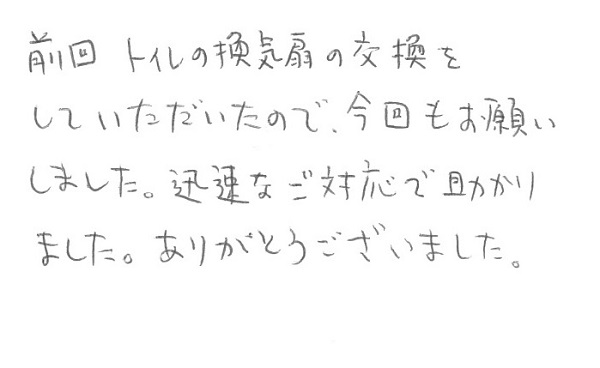 前回 トイレの換気扇の交換を
していただいたので、今回もお願い
しました。迅速なご対応で助かり
ました。ありがとうございました。